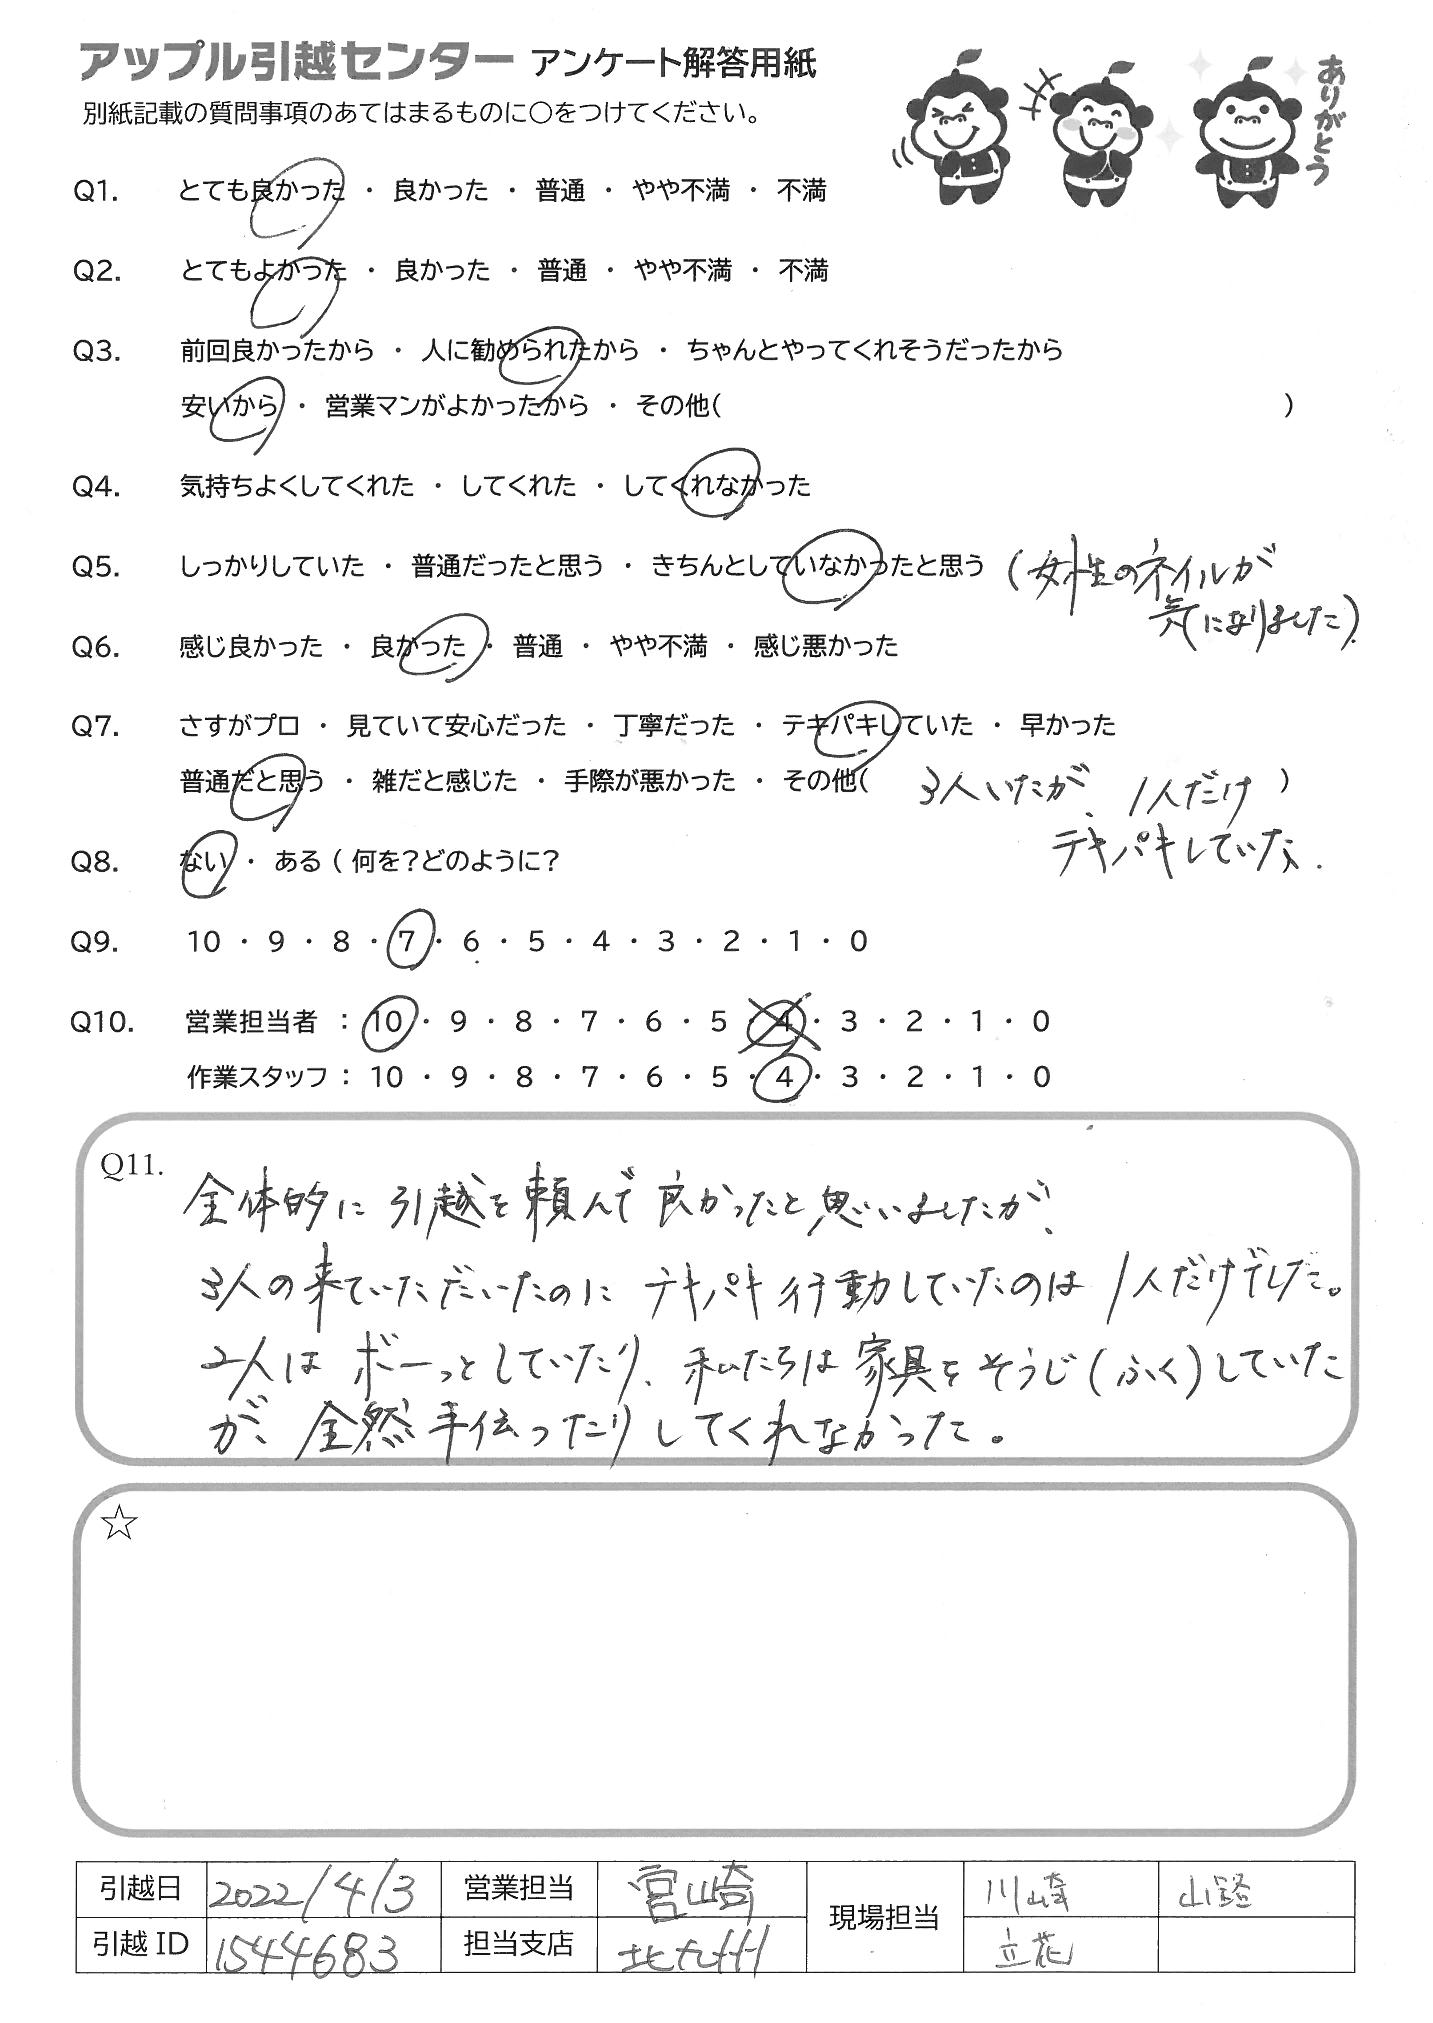 アップル引越センター アンケート解答用紙
別紙記載の質問事項のあてはまるものに〇をつけてください。
ありがとう
Q1. とても良かった ・ 良かった ・ 普通 ・ やや不満 ・ 不満
Q2. とてもよかった ・ 良かった ・ 普通 ・ やや不満 ・ 不満
Q3. 前回良かったから ・ 人に勧められたから ・ ちゃんとやってくれそうだったから
安いから ・ 営業マンがよかったから ・ その他( )
Q4. 気持ちよくしてくれた ・ してくれた ・ してくれなかった
Q5. しっかりしていた ・ 普通だったと思う ・ きちんとしていなかったと思う (女性のネイルが
気になりました).
Q6. 感じ良かった ・ 良かった ・ 普通 ・ やや不満 ・ 感じ悪かった
Q7. さすがプロ ・ 見ていて安心だった ・ 丁寧だった ・ テキパキしていた ・ 早かった
普通だと思う ・ 雑だと感じた ・ 手際が悪かった ・ その他( 3人いたが、1人だけ )
テキパキしていた.
Q8. ない ・ ある ( 何を?どのように?
Q9. 10 ・ 9 ・ 8 ・ 7 ・ 6 ・ 5 ・ 4 ・ 3 ・ 2 ・ 1 ・ 0
Q10. 営業担当者 : 10 ・ 9 ・ 8 ・ 7 ・ 6 ・ 5 ・ 4 ・ 3 ・ 2 ・ 1 ・ 0
作業スタッフ : 10 ・ 9 ・ 8 ・ 7 ・ 6 ・ 5 ・ 4 ・ 3 ・ 2 ・ 1 ・ 0
Q11.
全体的に引越を頼んで良かったと思いましたが、
3人の来ていただいたのにテキパキ行動していたのは1人だけでした。
2人はボーっとしていたり、私たちは家具をそうじ(ふく)していた
が、全然手伝ったりしてくれなかった。
☆
引越日 2022/4/3 営業担当 宮崎 現場担当 川崎 山路
引越ID 1544683 担当支店 北九州 立花